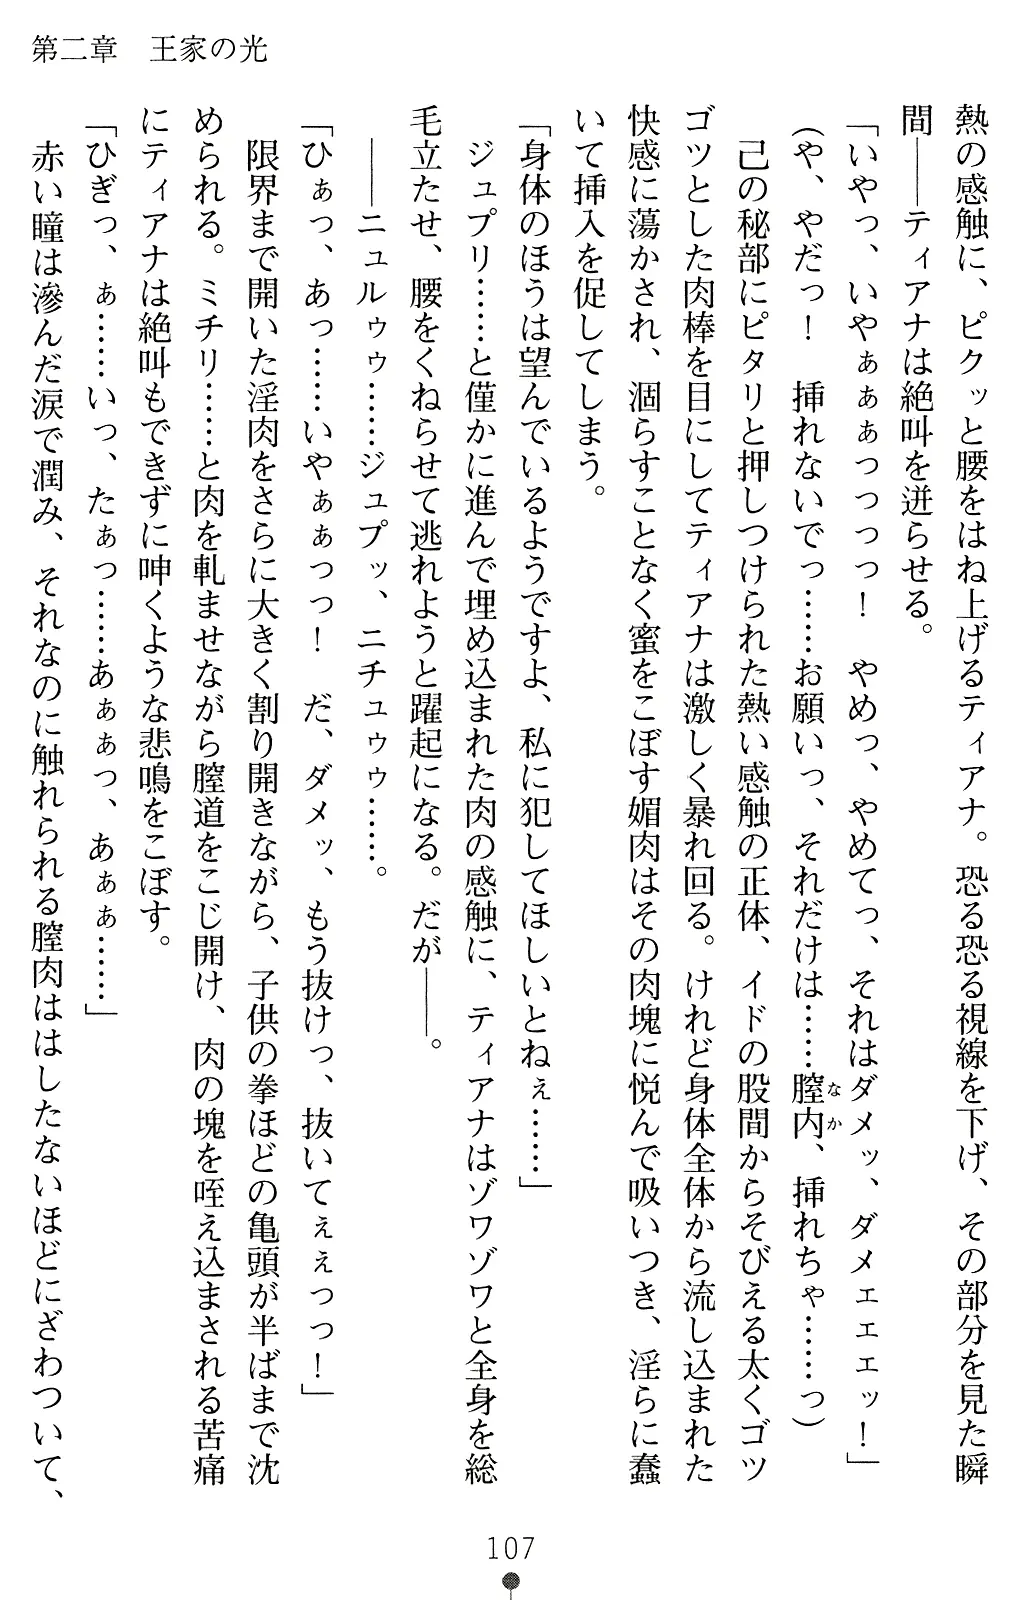 第二章　王家の光
熱の感触に、ピクッと腰をはね上げるティアナ。恐る恐る視線を下げ、その部分を見た瞬
間――ティアナは絶叫を迸らせる。
「いやっ、いやぁぁぁっっっっ！　やめっ、やめてっ、それはダメッ、ダメェェェッ！」
(や、やだっ！　挿れないでっ……お願いっ、それだけは……膣内、挿れちゃ……っ)
なか
己の秘部にピタリと押しつけられた熱い感触の正体、イドの股間からそびえる太くゴツ
ゴツとした肉棒を目にしてティアナは激しく暴れ回る。けれど身体全体から流し込まれた
快感に蕩かされ、涸らすことなく蜜をこぼす媚肉はその肉塊に悦んで吸いつき、淫らに蠢
いて挿入を促してしまう。
「身体のほうは望んでいるようですよ、私に犯してほしいとねぇ……」
ジュプリ……と僅かに進んで埋め込まれた肉の感触に、ティアナはゾワゾワと全身を総
毛立たせ、腰をくねらせて逃れようと躍起になる。だが――。
――ニュルゥゥ……ジュプッ、ニチュゥゥ……。
「ひぁっ、あっ……いやぁぁっっ！　だ、ダメッ、もう抜けっ、抜いてぇぇっっ！」
限界まで開いた淫肉をさらに大きく割り開きながら、子供の拳ほどの亀頭が半ばまで沈
められる。ミチリ……と肉を軋ませながら膣道をこじ開け、肉の塊を咥え込まされる苦痛
にティアナは絶叫もできずに呻くような悲鳴をこぼす。
「ひぎっ、ぁ……いっ、たぁっ……あぁぁっ、あぁぁ……」
赤い瞳は滲んだ涙で潤み、それなのに触れられる膣肉ははしたないほどにざわついて、
107